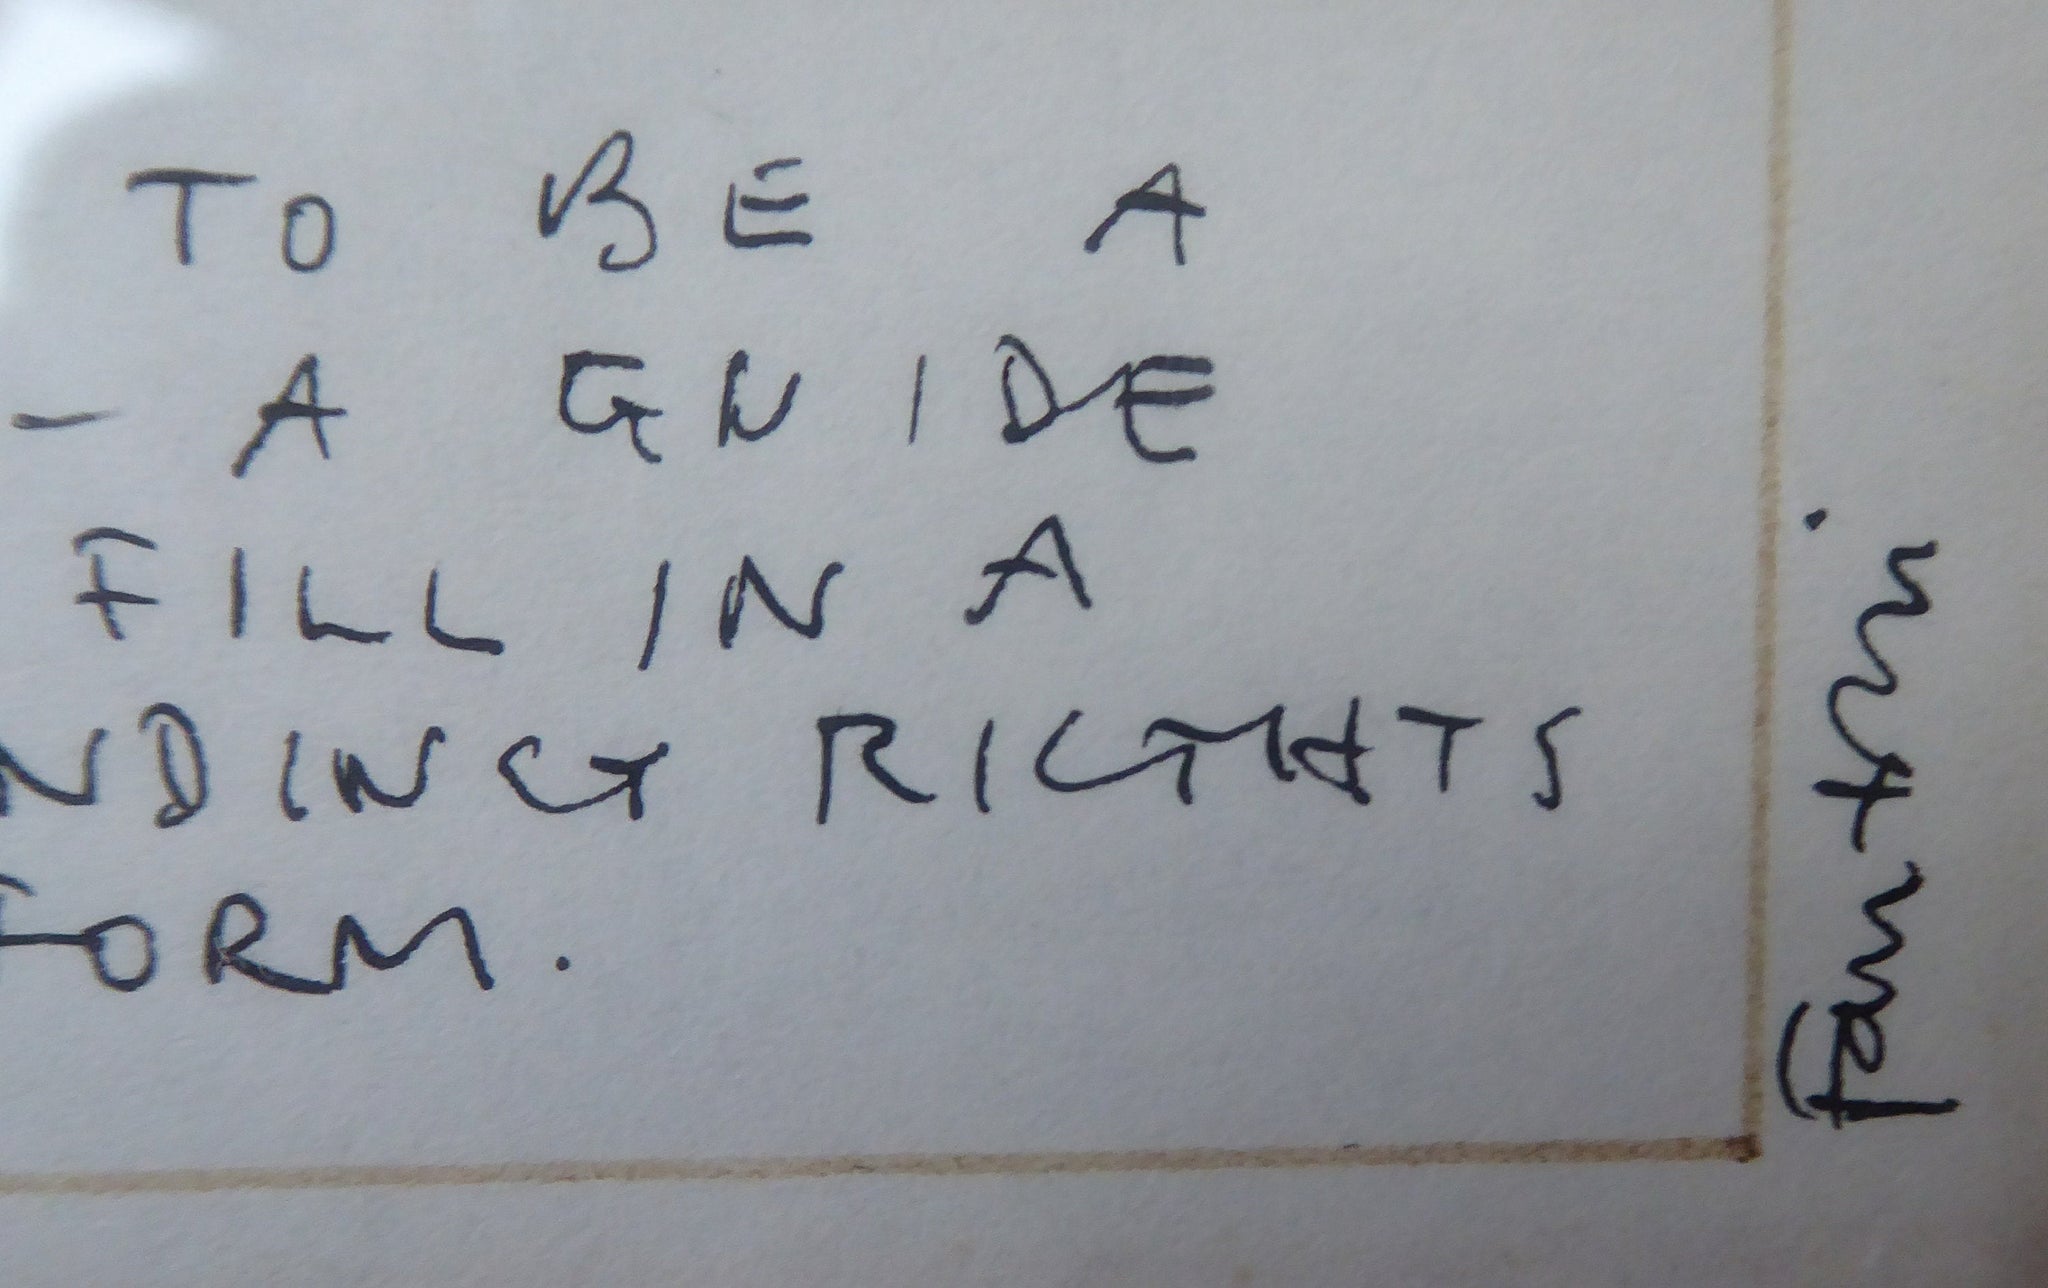 TO BE A
- A GUIDE
FILL IN A
NDING RIGHTS
FORM.